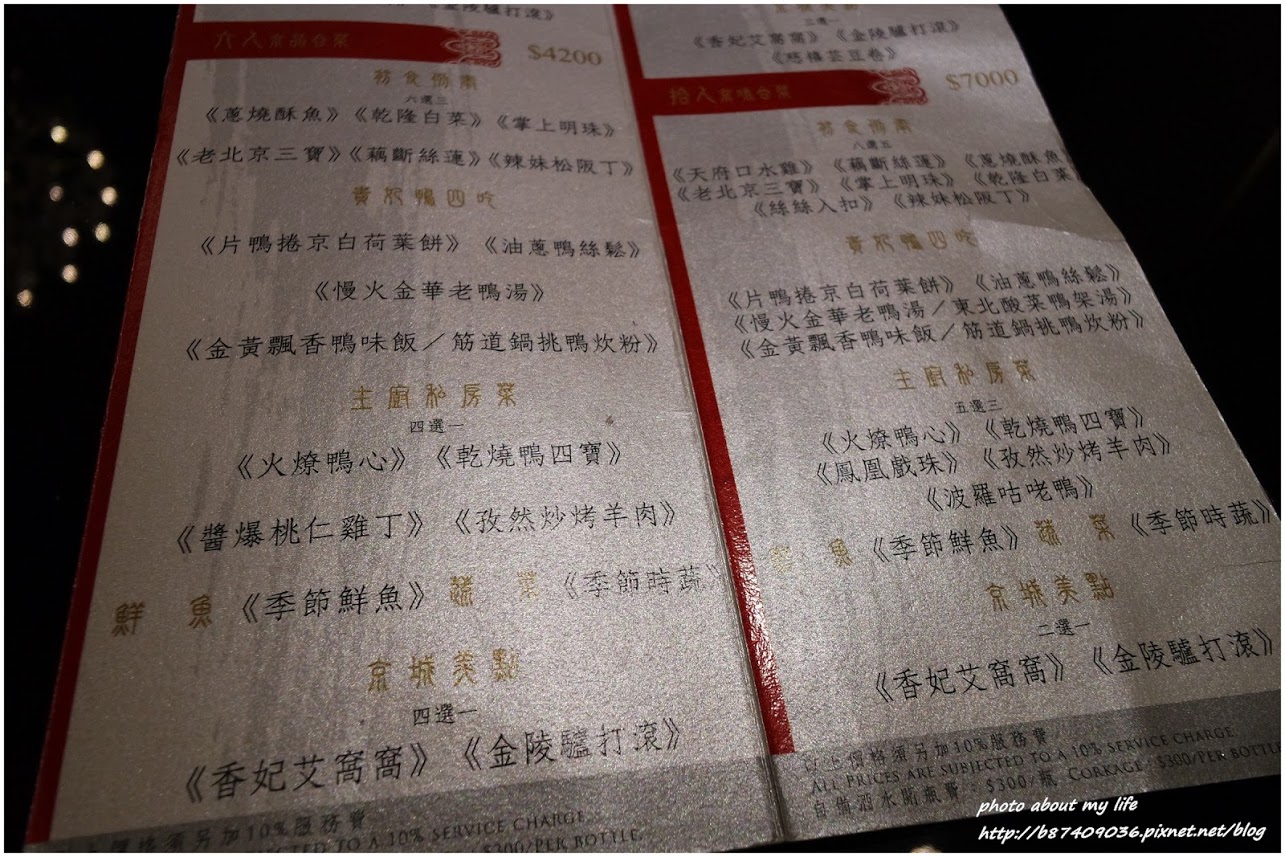 《金陵驢打滾》
六人京品合菜 $4200
六選三
《蔥燒酥魚》《乾隆白菜》《掌上明珠》
《老北京三寶》《藕斷絲蓮》《辣妹松阪丁》
貴妃鴨四吃
《片鴨捲京白荷葉餅》《油蔥鴨絲鬆》
《慢火金華老鴨湯》
《金黃飄香鴨味飯／筋道鍋挑鴨炊粉》
主廚私房菜
四選一
《火燎鴨心》《乾燒鴨四寶》
《醬爆桃仁雞丁》《孜然炒烤羊肉》
鮮魚《季節鮮魚》蔬菜《季節時蔬》
京城美點
四選一
《香妃艾窩窩》《金陵驢打滾》
以上價格須另加10%服務費
TO A 10% SERVICE CHARGE
$300/PER BOTTLE
三選一
《香妃艾窩窩》《金陵驢打滾》
《慈禧芸豆卷》
拾人 $7000
八選五
《天府口水雞》《藕斷絲蓮》《蔥燒酥魚
《老北京三寶》《掌上明珠》《乾隆白菜
《絲絲入扣》《辣妹松阪丁》
貴妃鴨四吃
《片鴨捲京白荷葉餅》《油蔥鴨絲鬆》
《慢火金華老鴨湯／東北酸菜鴨架湯》
《金黃飄香鴨味飯／筋道鍋挑鴨炊粉》
主廚私房菜
五選三
《火燎鴨心》《乾燒鴨四寶》
《鳳凰戲珠》《孜然炒烤羊肉》
《波羅咕咾鴨》
鮮魚《季節鮮魚》蔬菜《季節時蔬》
京城美點
二選一
《香妃艾窩窩》《金陵驢打滾》
以上價格須另加10%服務費
ALL PRICES ARE SUBJECTED TO A 10% SERVICE CHARGE
自備酒水開瓶費：$300/瓶 CORKAGE：$300/PER BOTTLE
photo about my life
http://b87409036.pixnet.net/blog